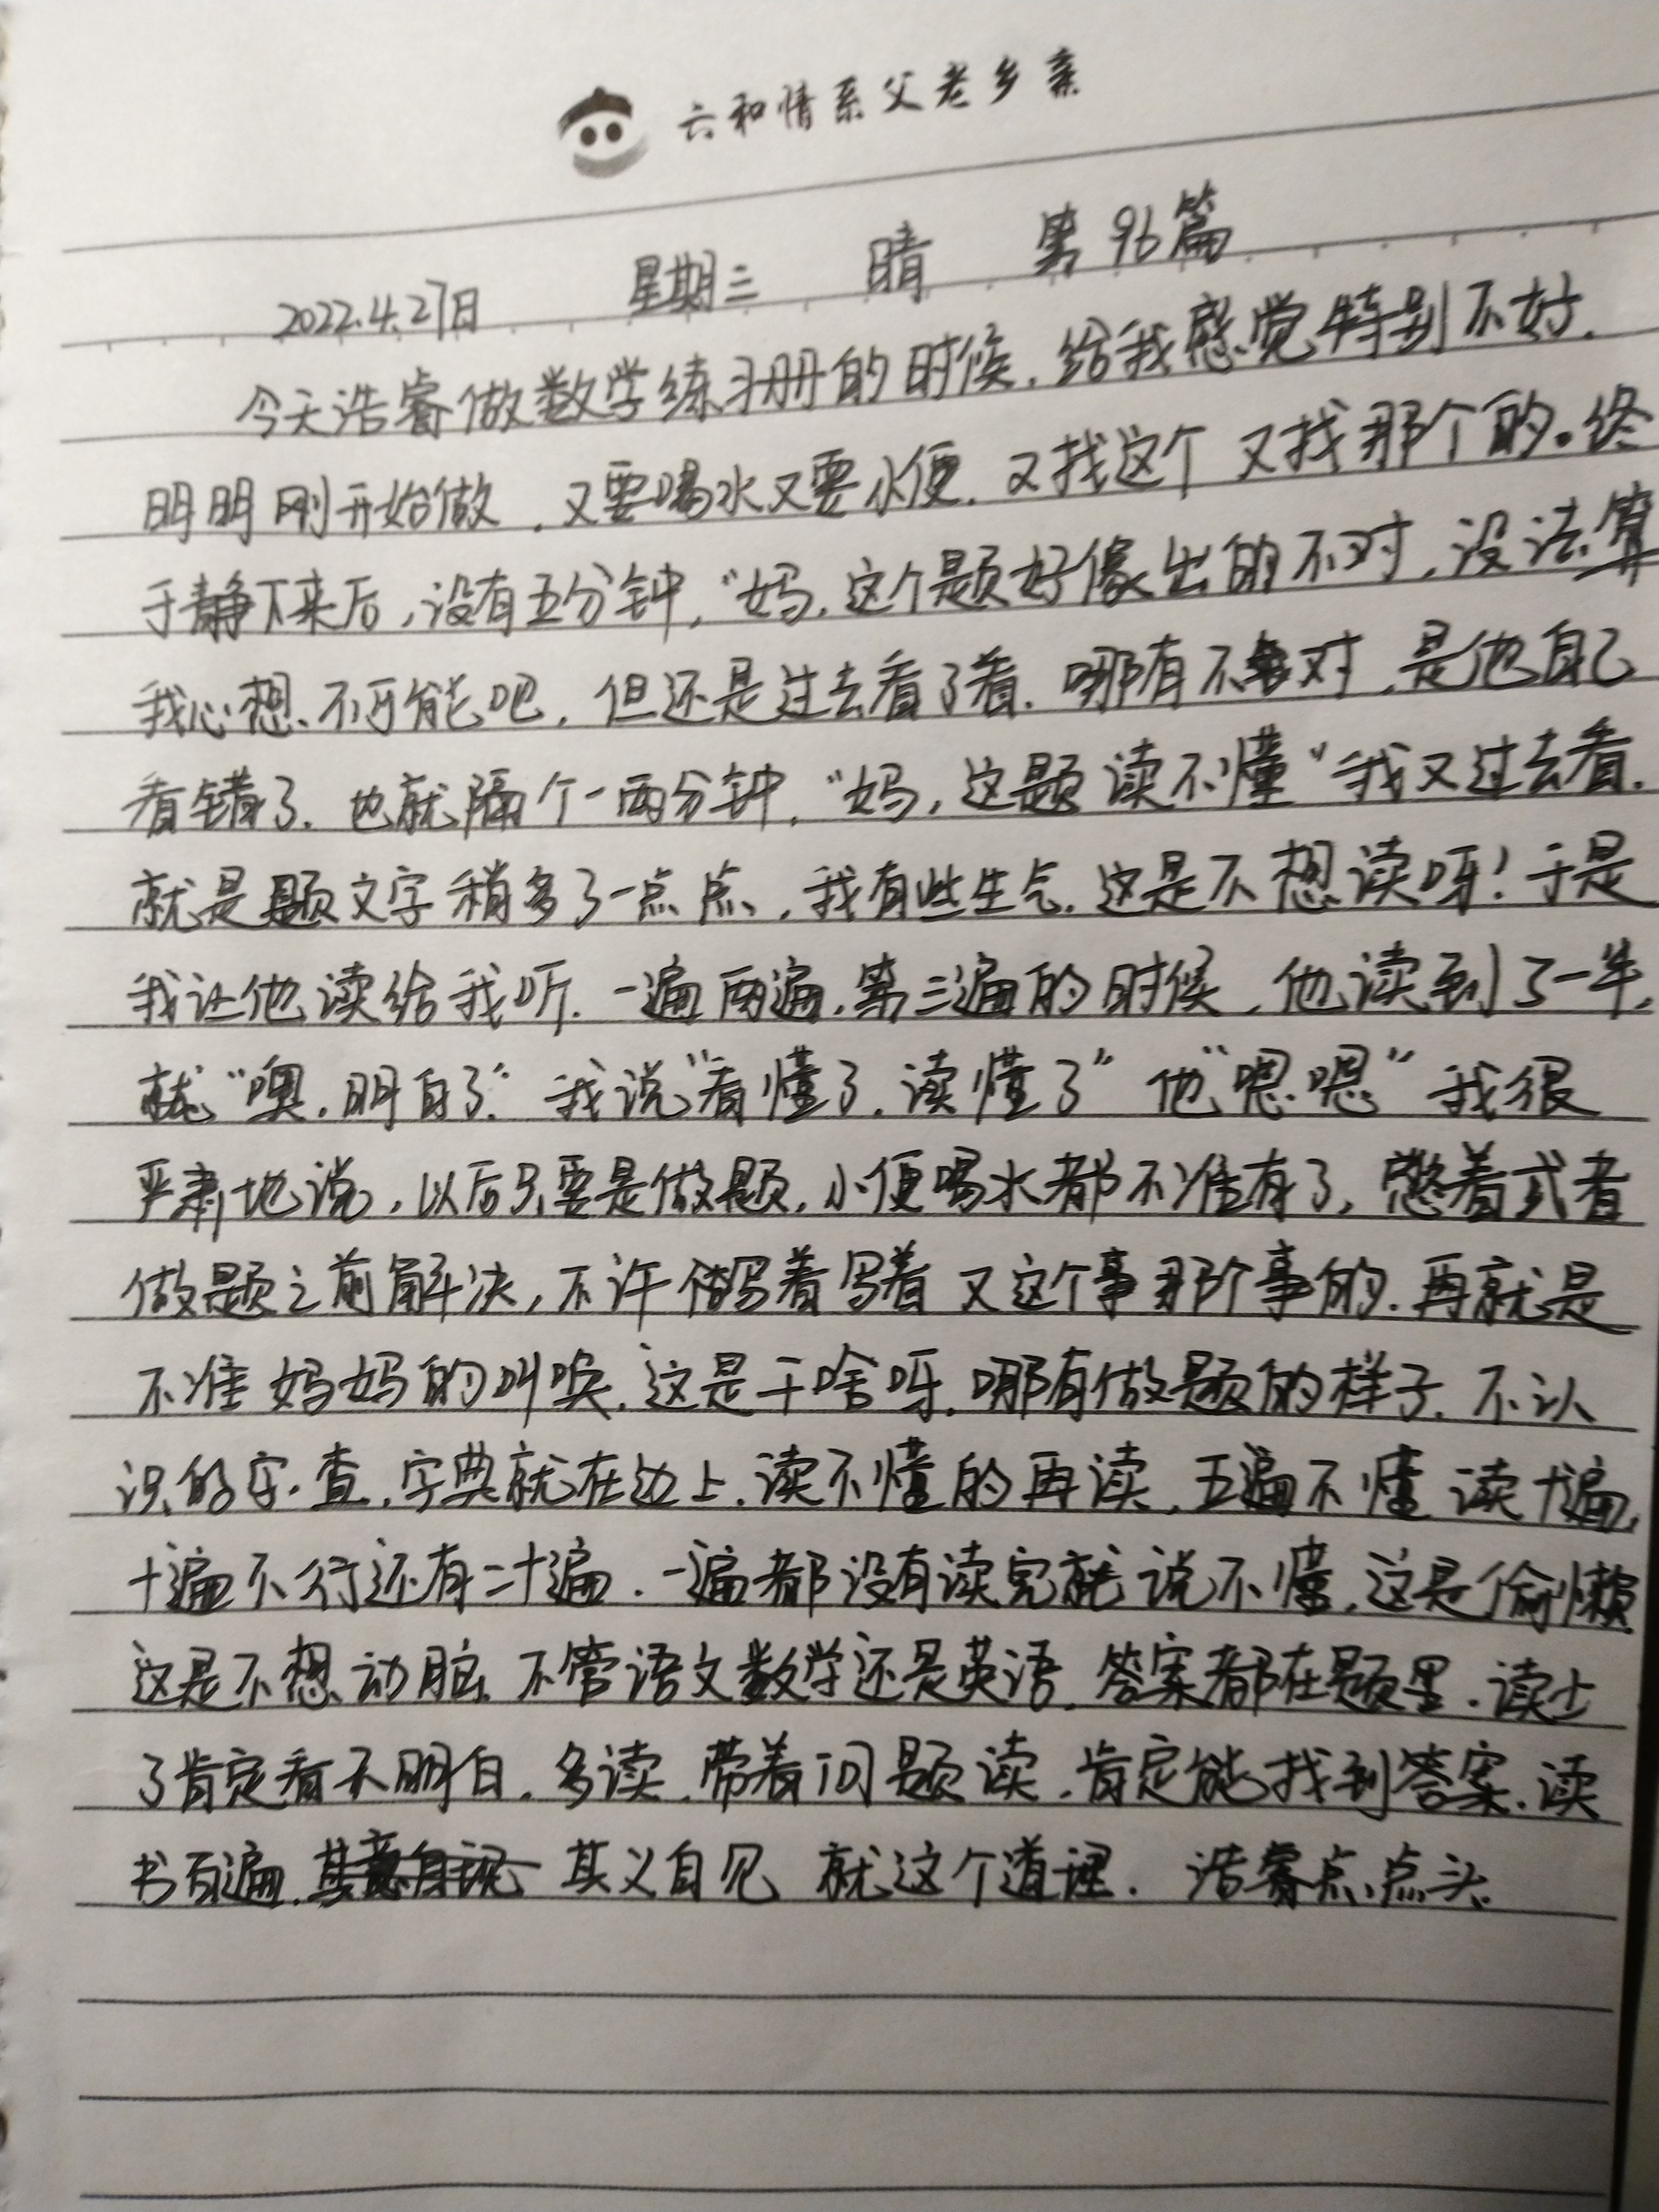 六和情系父老乡亲
2022.4.27日 星期三 晴 第96篇
今天浩睿做数学练习册的时候,给我感觉特别不好.
明明刚开始做,又要喝水又要小便,又找这个又找那个的。终
于静下来后,没有五分钟,“妈,这个题好像出的不对,没法算
我心想,不可能吧,但还是过去看了看.哪有不对,是他自己
看错了.也就隔个一两分钟,“妈,这题读不懂”我又过去看.
就是题文字稍多了一点点,我有些生气.这是不想读呀!于是
我让他读给我听.一遍两遍,第三遍的时候,他读到了一半,
就“噢,明白了”我说“看懂了,读懂了”他“嗯.嗯”我很
严肃地说,以后只要是做题,小便喝水都不准有了,憋着或者
做题之前解决,不许写着写着又这个事那个事的.再就是
不准妈妈的叫唤,这是干啥呀.哪有做题的样子.不认
识的字.查,字典就在边上.读不懂的再读,五遍不懂读十遍,
十遍不行还有二十遍.一遍都没有读完就说不懂,这是偷懒
这是不想动脑.不管语文数学还是英语,答案都在题里.读少
了肯定看不明白.多读,带着问题读,肯定能找到答案.读
书百遍,其义自见 就这个道理. 浩睿点点头.